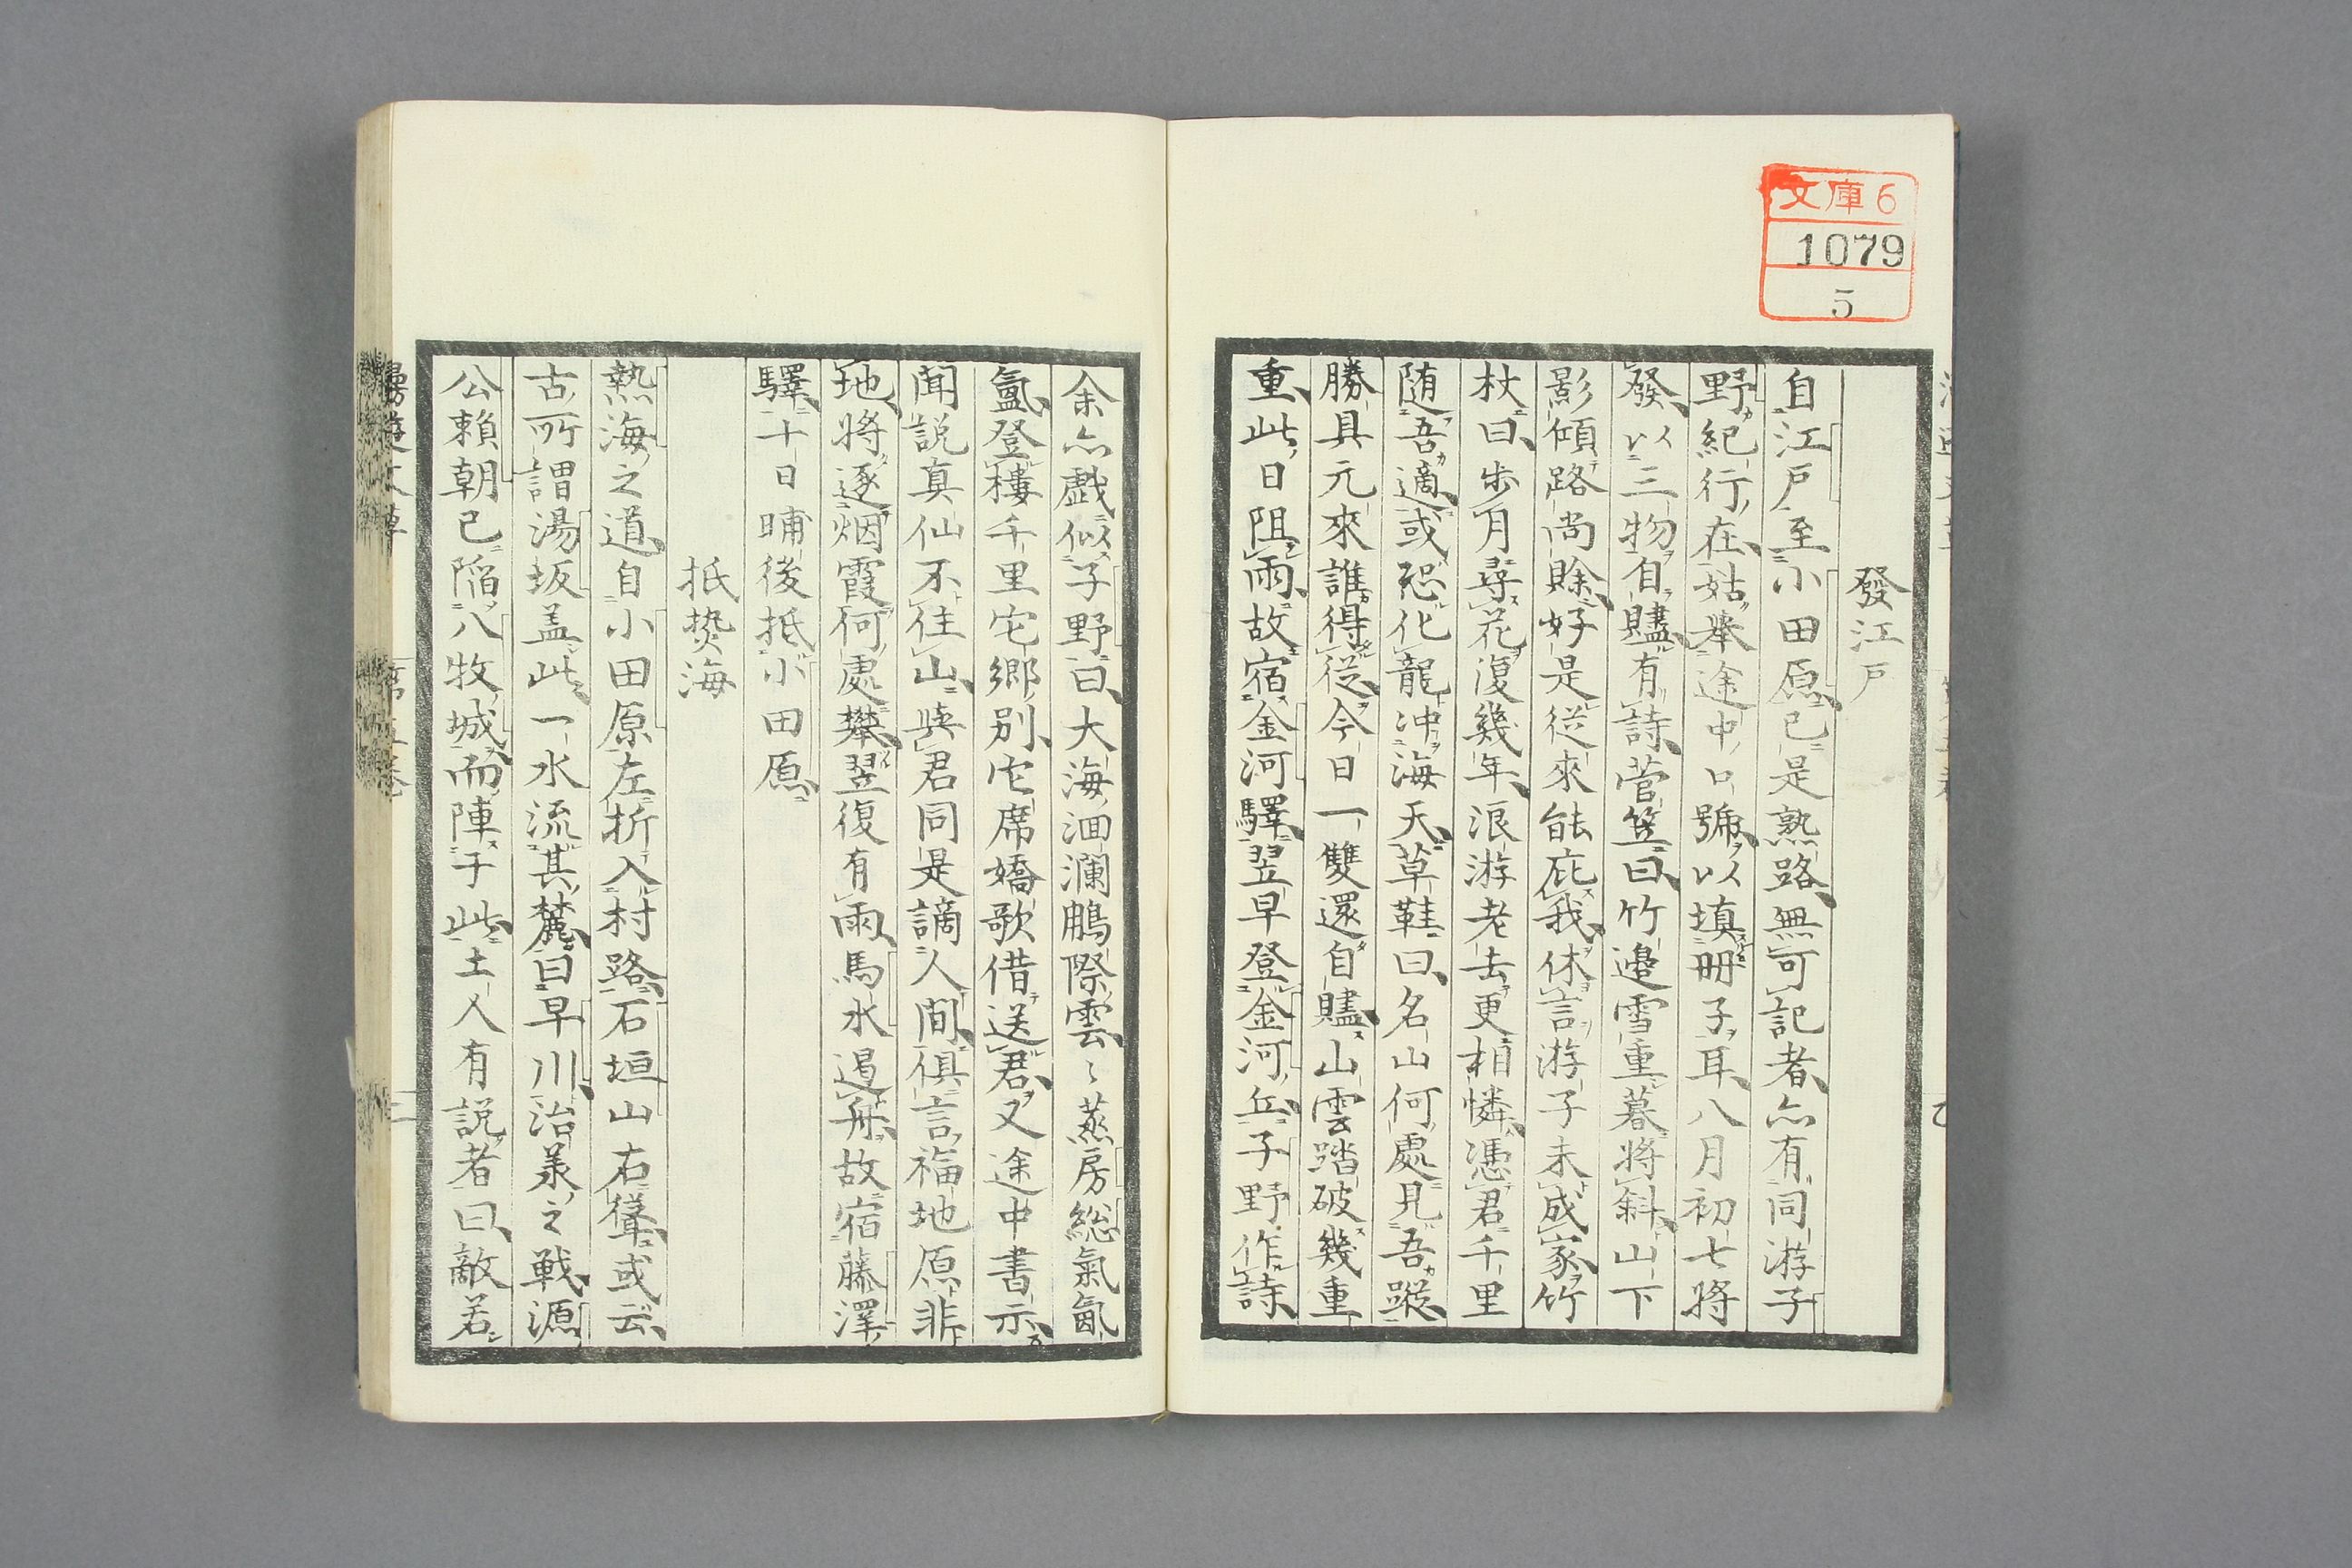 文庫6
1079
5
發江戶
自江戶至小田原已是熟路無可記者亦有同游子
野紀行在姑舉途中口號以塡冊子耳八月初七將
發以三物自贐有詩菅笠曰竹邊雪重暮將斜山下
影傾路尚賖好是從來能庇我休言游子未成家竹
杖曰步月尋花復幾年浪游老去更相憐憑君千里
随吾適或恐化龍冲海天草鞋曰名山何處見吾蹤
勝具元來誰得從今日一雙還自贐山雲踏破幾重
重此日阻雨故宿金河驛翌早登金河丘子野作詩
余亦戯似子野曰大海洄瀾鵰際雲〻蒸房総氣氤
氳登樓千里宅鄉別宅席嬌歌借送君又途中書示
聞説真仙不住山與君同是謫人間俱言福地原非
地將逐烟霞何處攀翌復有雨馬水遏舟故宿藤澤
驛十日晡後抵小田原
抵熱海
熱海之道自小田原左折入村路石垣山右聳或云
古所謂湯坂盖此一水流其麓曰早川治羕之戦源
公賴朝已陥八牧城而陣于此土人有説者曰敵若
漫遊文草
第五卷
二